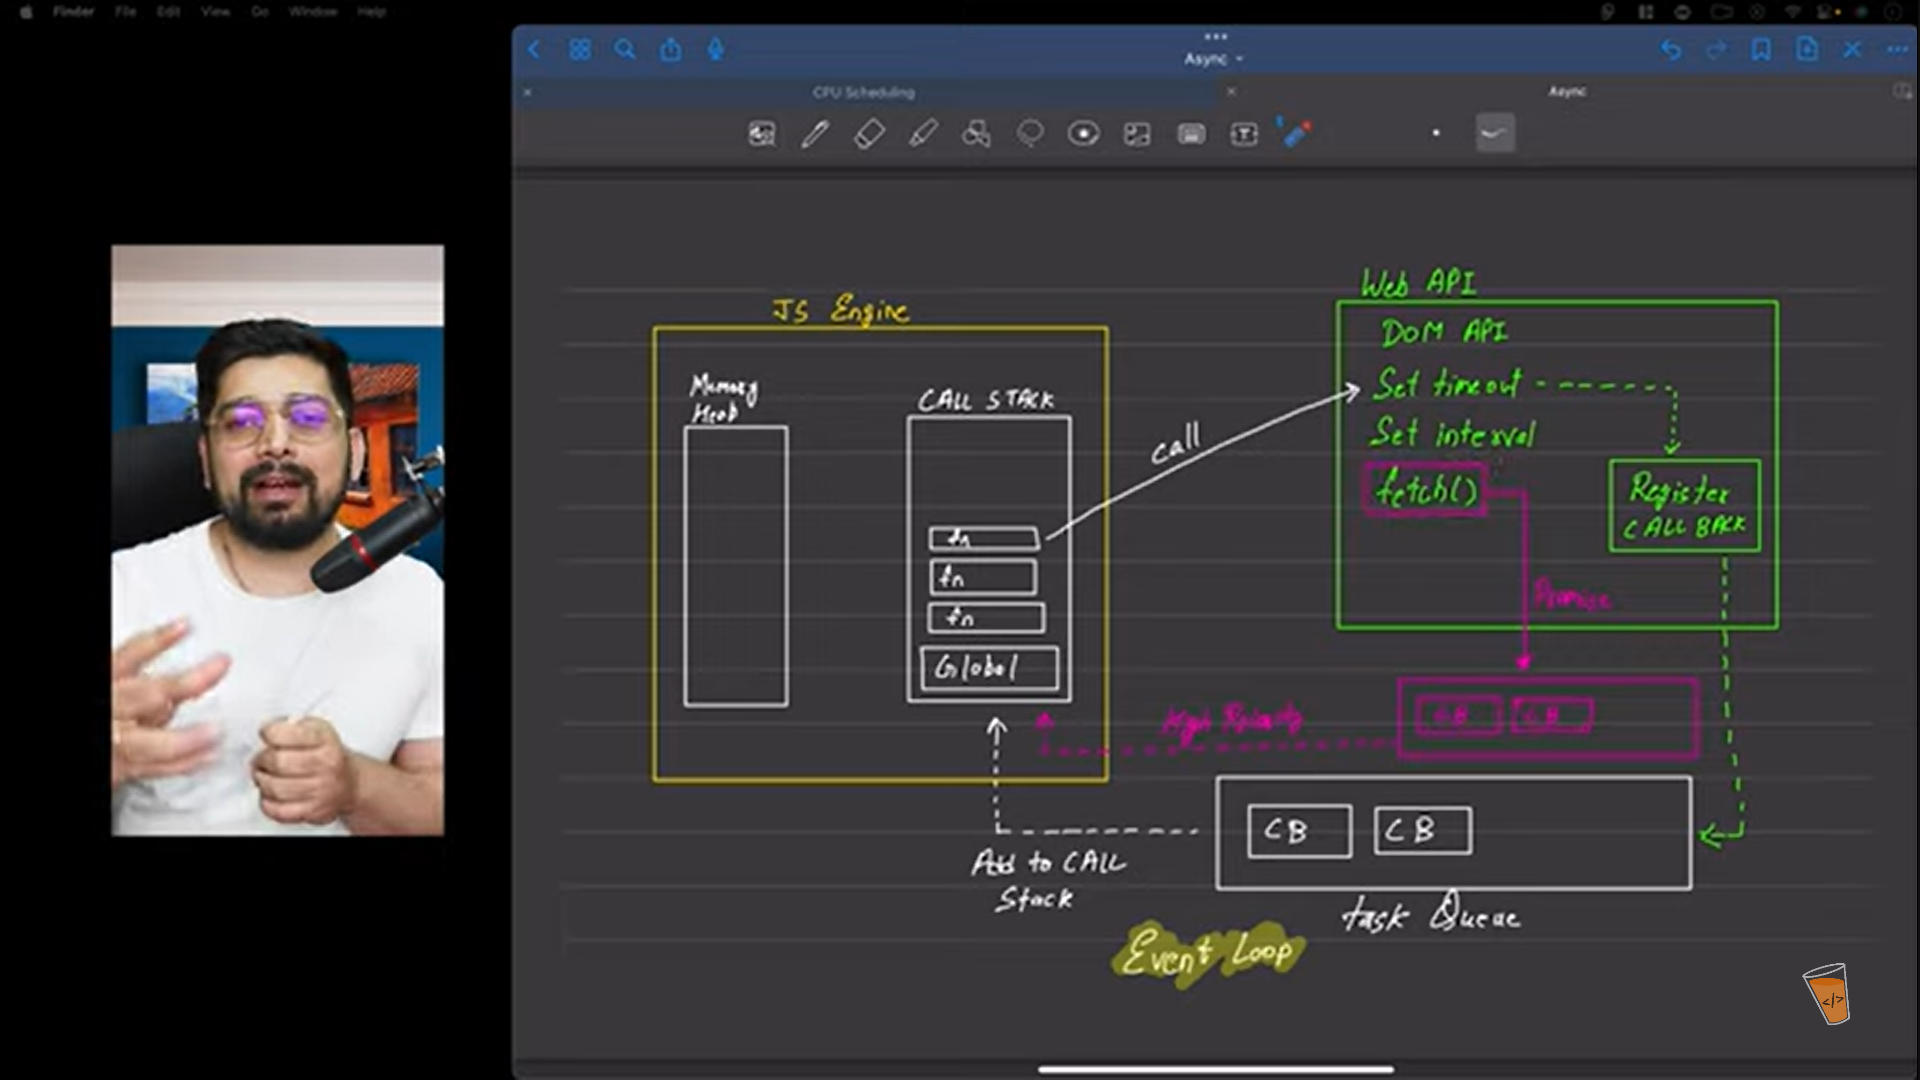 Finder File Edit View Go Window Help
Async
CPU Scheduling
Async
JS Engine
Memory
Heap
CALL STACK
fn
fn
fn
Global
call
Web API
DOM API
Set timeout
Set interval
fetch()
Register
CALL BACK
Promise
High Priority
CB CB
CB CB
Add to CALL
Stack
Task Queue
Event Loop
</>